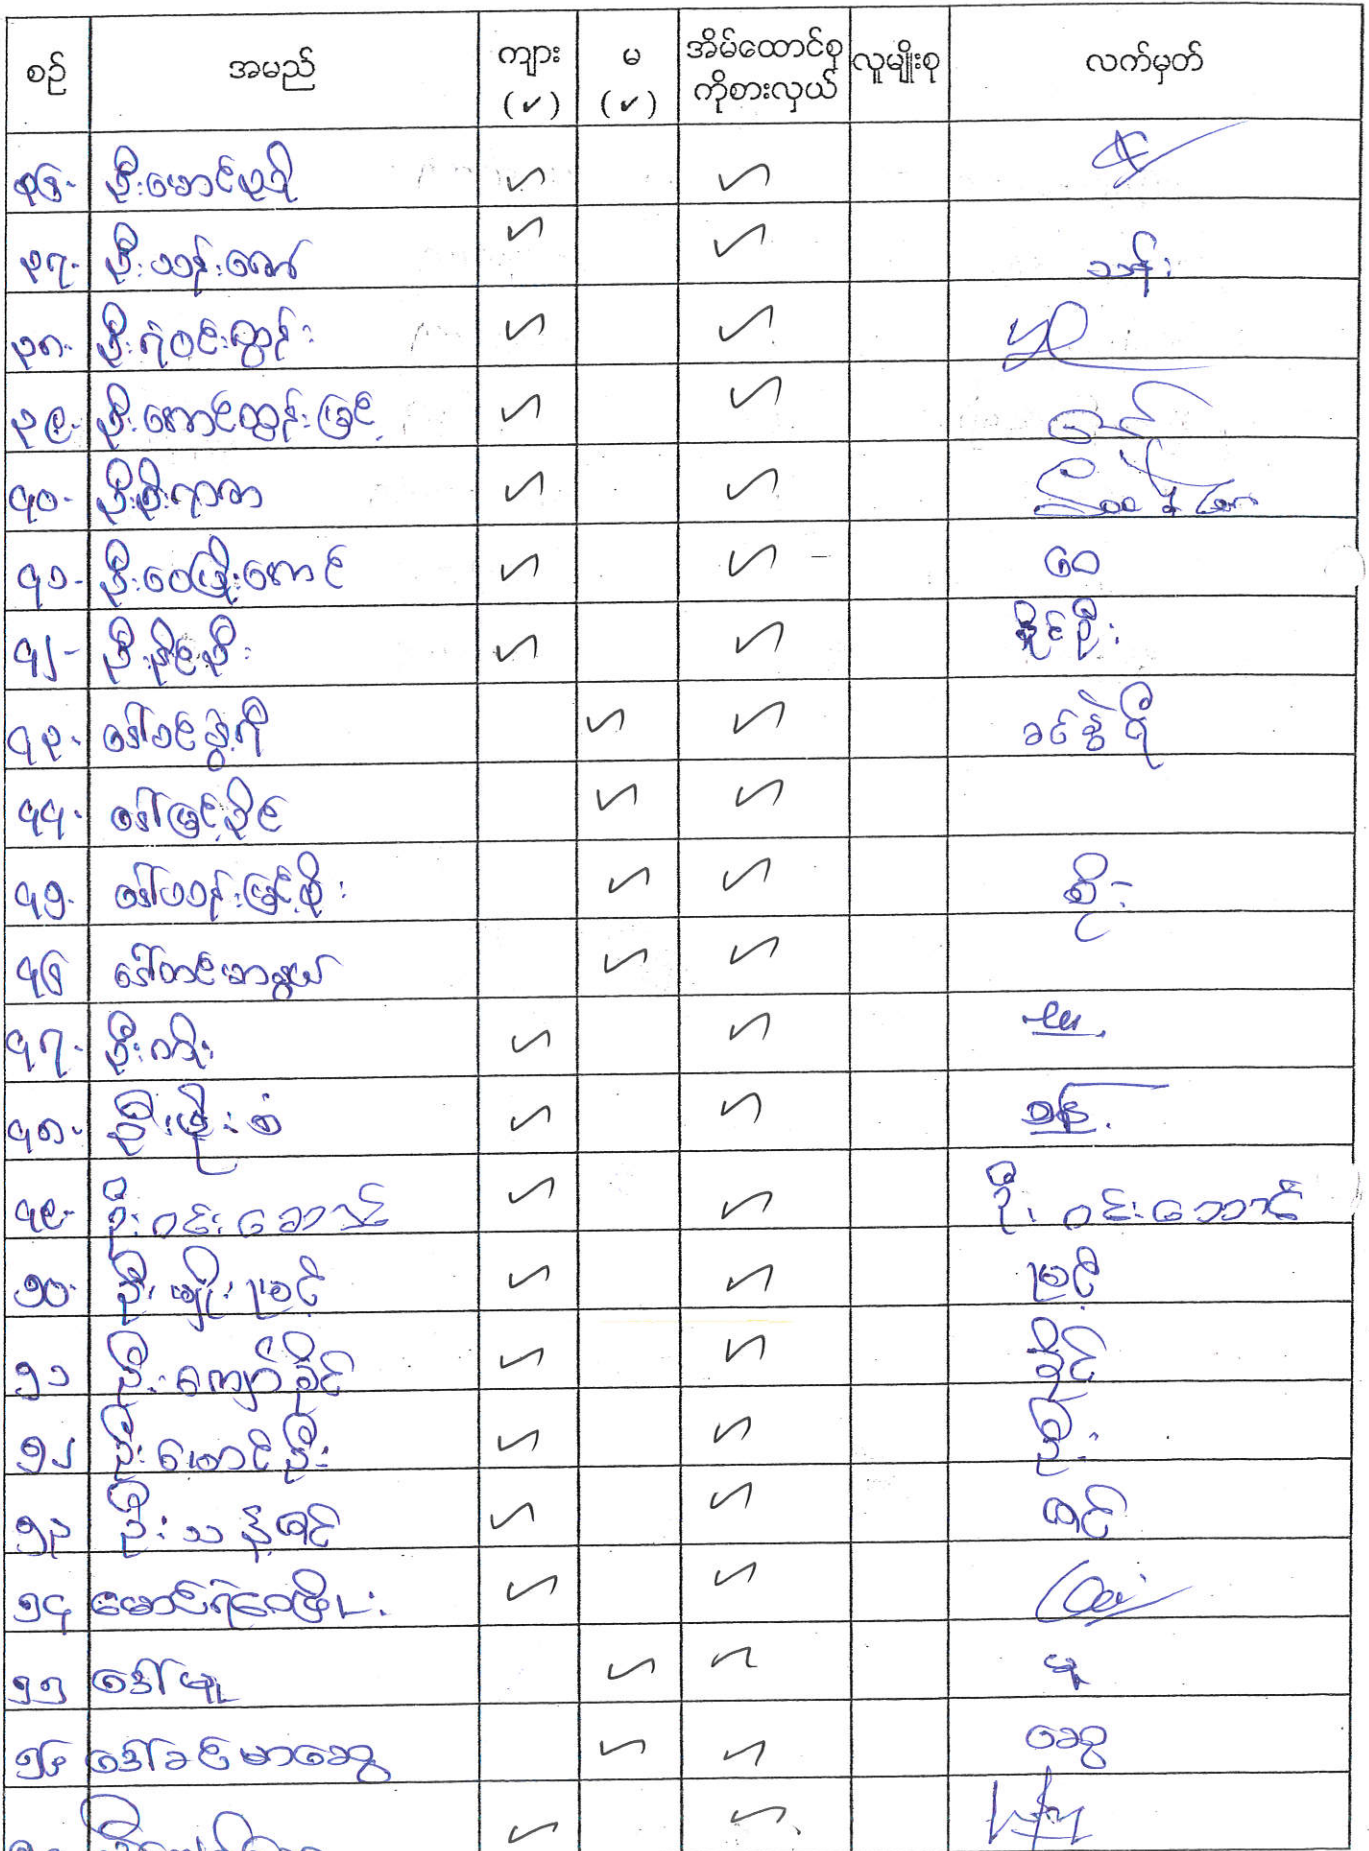 စဉ် အမည် ကျား (✓) မ (✓) အိမ်ထောင်စု ကိုစားလှယ် လူမျိုးစု လက်မှတ်
၃၆. ဦးမောင်ဥရို ✓ ✓
၃၇. ဦးသန်းဇော် ✓ ✓ သန်း
၃၈. ဦးရဲဝင်းထွန်း ✓ ✓
၃၉. ဦးအောင်ထွန်းမြင့် ✓ ✓
၄၀. ဦးစိုးရာဇာ ✓ ✓
၄၁. ဦးဝေဖြိုးအောင် ✓ ✓ ဝေ
၄၂- ဦးနိုင်ဦး ✓ ✓ နိုင်ဦး
၄၃. ဒေါ်ခင်နွဲ့ရီ ✓ ✓ ခင်နွဲ့ရီ
၄၄. ဒေါ်မြင့်ခိုင် ✓ ✓
၄၅. ဒေါ်သန်းမြင့်စိုး ✓ ✓ စိုး
၄၆ ဒေါ်တင်မာနွယ် ✓ ✓
၄၇. ဦးကိုး ✓ ✓
၄၈. ဦးဖိုးစံ ✓ ✓
၄၉. ဦးဝင်းအောင် ✓ ✓ ဦးဝင်းအောင်
၅၀. ဦးမျိုးမြင့် ✓ ✓ မြင့်
၅၁ ဦးကျော်ခိုင် ✓ ✓ ခိုင်
၅၂ ဦးမောင်ဦး ✓ ✓ ဦး
၅၃ ဦးသန့်ဇင် ✓ ✓ ဇင်
၅၄ မောင်ရဲဝေဖြိုး ✓ ✓
၅၅ ဒေါ်မူ ✓ ✓ မူ
၅၆ ဒေါ်ခင်မာဆွေ ✓ ✓ ဆွေ
✓ ✓